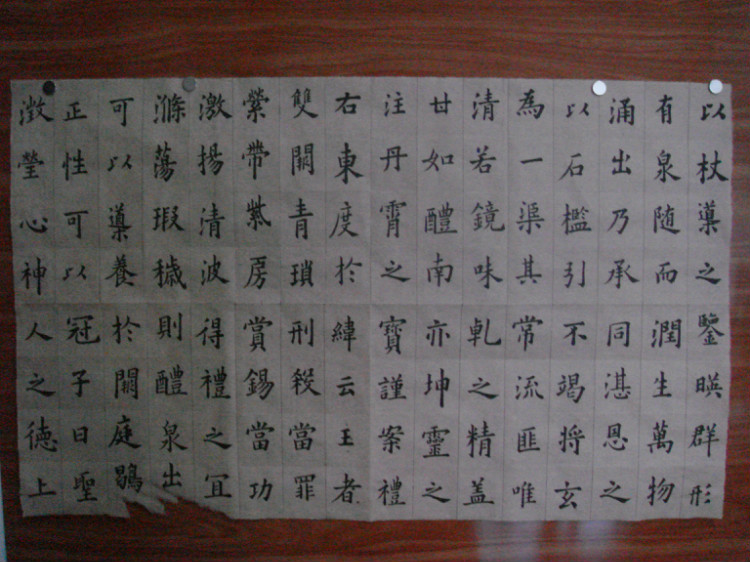 以杖導之
有泉隨而
涌出乃承
以石檻引
為一渠其
清若鏡味
甘如醴南
注丹霄之
右東度於
雙闕青瑣
縈帶紫房
激揚清波
滌蕩瑕穢
可以導養
正性可以
澂瑩心神
鑒暎群形
潤生萬物
同湛恩之
不竭将玄
常流匪唯
軋之精盖
亦坤靈之
寶謹案禮
緯云王者
刑殺當罪
賞錫當功
得禮之宜
則醴泉出
於闕庭鶡
冠子曰聖
人之德上